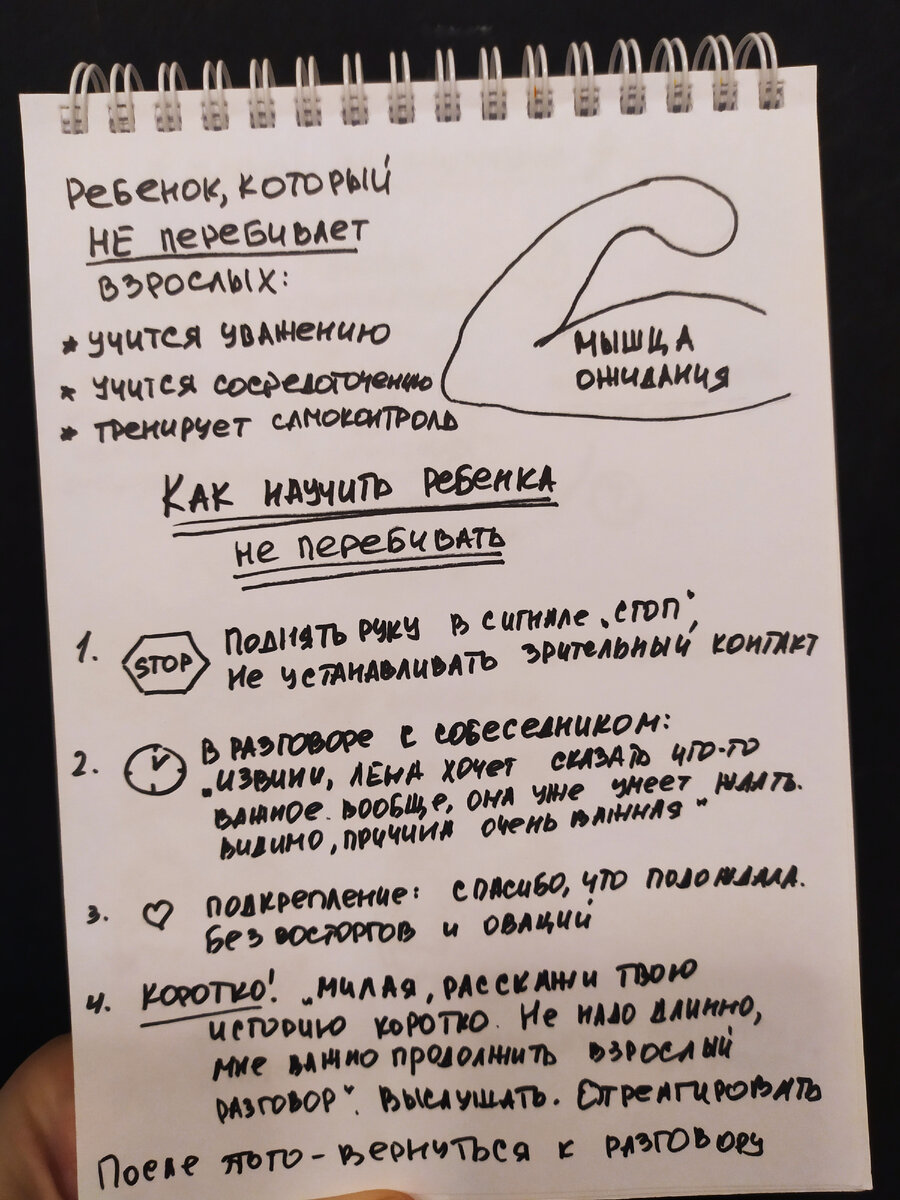 Ребенок, который
не перебивает
взрослых:
* учится уважению
* учится сосредоточению
* тренирует самоконтроль
мышца
ожидания
Как научить ребенка
не перебивать
1. STOP Поднять руку в сигнале „стоп“,
не устанавливать зрительный контакт
2. В разговоре с собеседником:
„извини, Лена хочет сказать что-то
важное. Вообще, она уже умеет ждать.
Видимо, причина очень важная“
3. Подкрепление: спасибо, что подождала.
Без восторгов и оваций
4. Коротко! „Милая, расскажи твою
историю коротко. Не надо длинно,
мне важно продолжить взрослый
разговор“. Выслушать. Отреагировать
После этого - вернуться к разговору